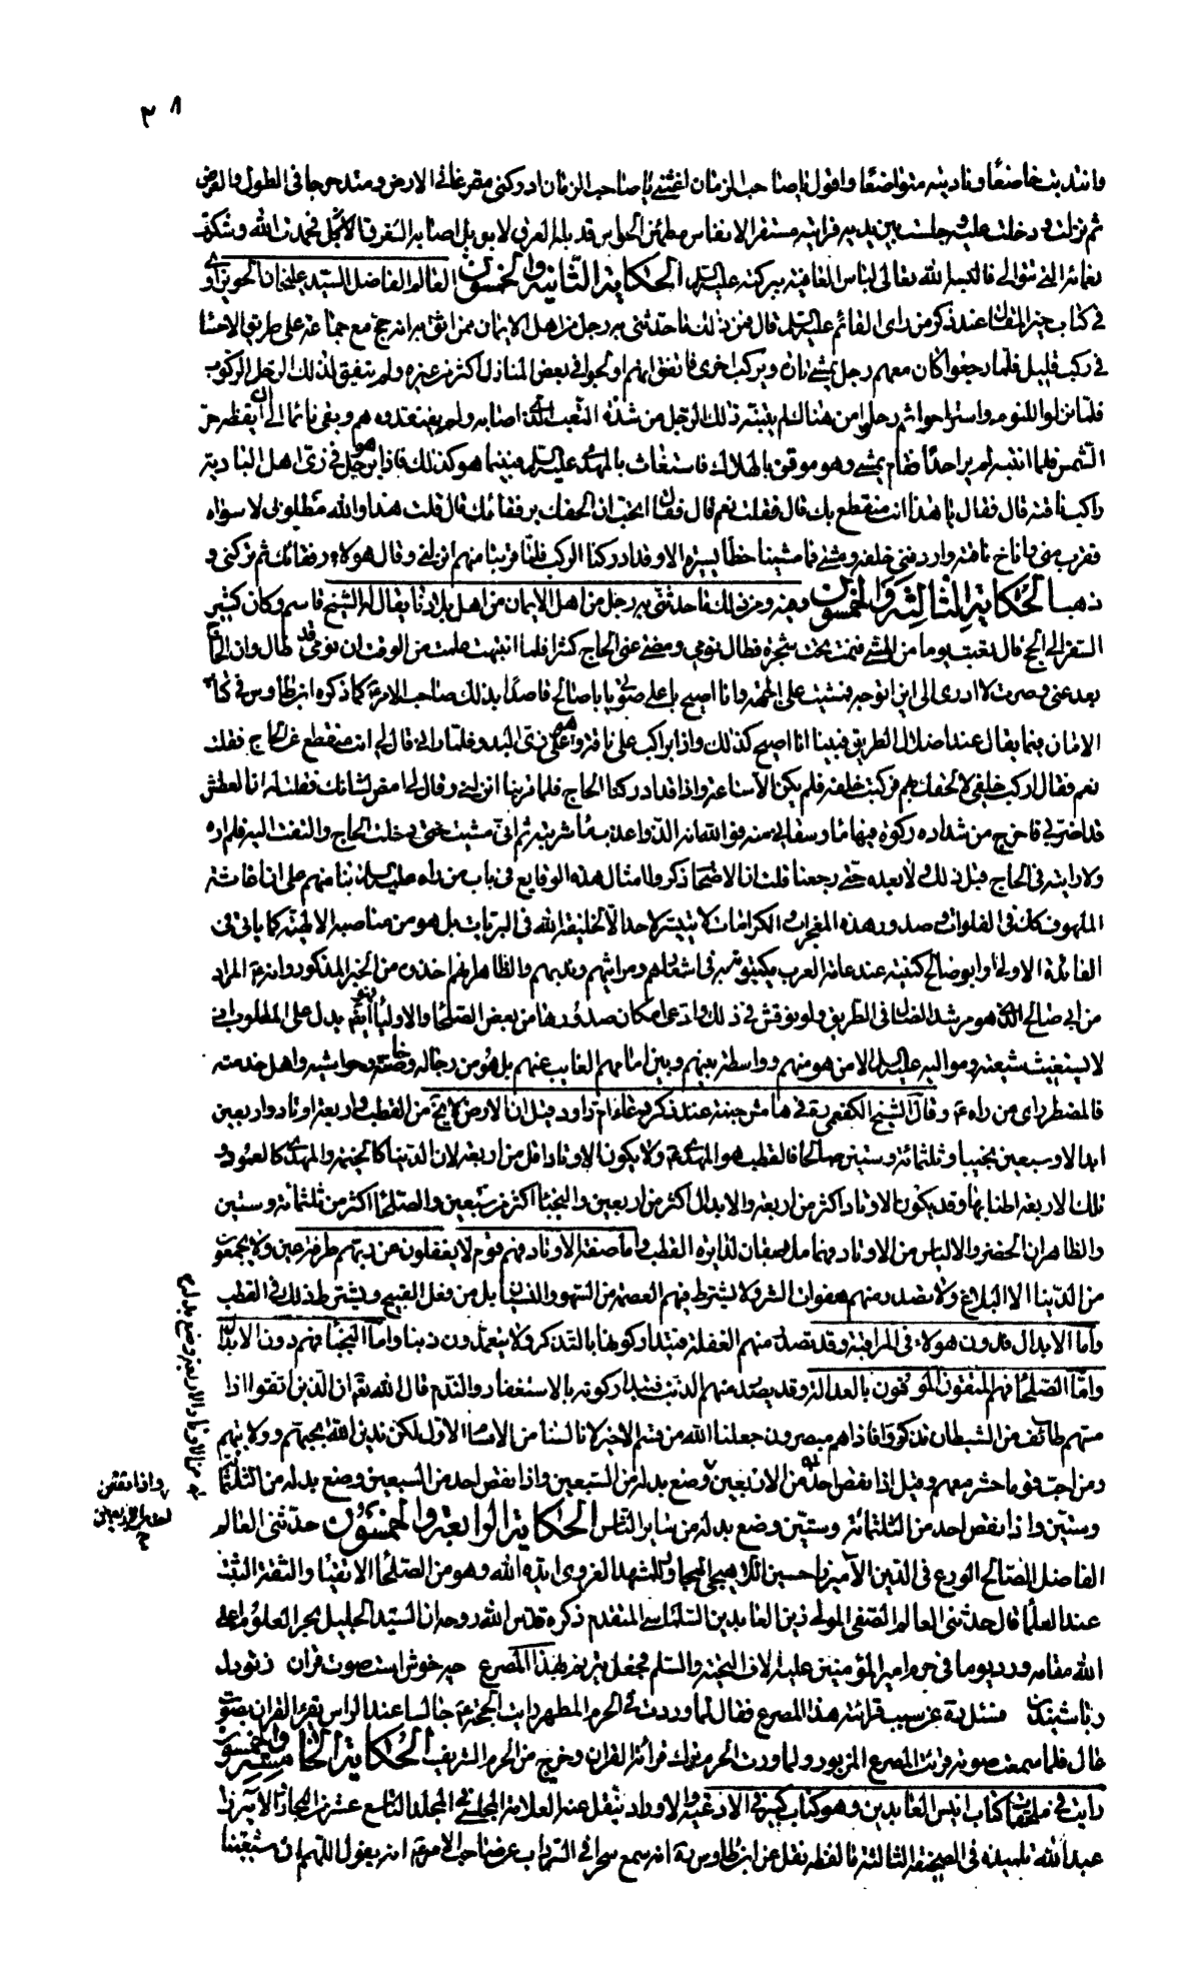 ٢٨
وانتدبت خاضعًا وناديته متواضعًا واقول يا صاحب الزمان اغثني يا صاحب الزمان ادركني متمرغا في الارض ومتدحرجا في الطول والعرض
ثم نزلت ودخلت عليه وجلست بين يديه فرايته مستقر الانفاس مطمئن الحواس قد بله العرق لا بل اصابه الغرق فحمدت الله وشكرت
نعمائه التي تتوالى فالبسه الله تعالى لباس العافية ببركته عليه السلم الحكاية الثانية والخمسون العالم الفاضل السيد عليخان الحويزاوي
في كتاب خير المقال عند ذكر من راى القائم عليه السلم قال فمن ذلك ما حدثني به رجل من اهل الايمان ممن اثق به انه حج مع جماعة على طريق الاحسا
في ركب قليل فلما رجعوا كان معهم رجل يمشي تارة ويركب اخرى فاتفق انهم اولجوا في بعض المنازل اكثر من غيره ولم يتفق لذلك الرجل الركوب
فلما نزلوا للنوم واستراحوا ثم رحلوا من هناك لم يتنبه ذلك الرجل من شدة التعب الذي اصابه ولم يفتقدوه هم وبقي نائما الى ان ايقظه حر
الشمس فلما انتبه لم ير احدًا فقام يمشي وهو موقن بالهلاك فاستغاث بالمهدي عليه السلم فبينما هو كذلك فاذا هو برجل في زي اهل البادية
راكب ناقة قال فقال يا هذا انت منقطع بك قال فقلت نعم قال فقال اتحب ان الحقك برفقائك قال قلت هذا والله مطلوبي لا سواه
فقرب مني واناخ ناقته واردفني خلفه ومشى فما مشينا خطا يسيرة الا وقد ادركنا الركب فلما قربنا منهم انزلني وقال هؤلاء رفقائك ثم تركني و
ذهب الحكاية الثالثة والخمسون وفيه ومن ذلك ما حدثني به رجل من اهل الايمان من اهل بلادنا يقال له الشيخ قاسم وكان كثير
السفر الى الحج قال تعبت يوما من المشي فنمت تحت شجرة فطال نومي ومضى عني الحاج كثيرا فلما انتبهت علمت من الوقت ان نومي قد طال وان الحاج
بعد عني وصرت لا ادري الى اين اتوجه فمشيت على الجهة وانا اصيح باعلى صوتي يا ابا صالح قاصدا بذلك صاحب الامر ع كما ذكره ابن طاوس في كتاب
الامان فيما يقال عند اضلال الطريق فبينا انا اصيح كذلك واذا براكب على ناقة وهو على زي البدو فلما راني قال لي انت منقطع عن الحاج فقلت
نعم فقال اركب خلفي لالحقك بهم فركبت خلفه فلم يكن الا ساعة واذا قد ادركنا الحاج فلما قربنا انزلني وقال لي امض لشانك فقلت له ان العطش
قد اضر بي فاخرج من شداده ركوة فيها ماء وسقاني منه فوالله انه الذ واعذب ماء شربته ثم اني مشيت حتى دخلت الحاج والتفت اليه فلم اره
ولا رايته في الحاج قبل ذلك ولا بعده حتى رجعنا قلت ان الاصحاب ذكروا امثال هذه الوقايع في باب من راه عليه السلم بناء منهم على ان اغاثة
الملهوف كذلك في الفلوات وصدور هذه المعجزات والكرامات لا يتيسر لاحد الا لخليفة الله في البريات بل هو من مناصبه الالهية كما ياتي في
الفائدة الاولى وابو صالح كنيته عند عامة العرب يكنونه به في اشعارهم ومراثيهم وندبهم والظاهر انهم اخذوه من الخبر المذكور وانه ع المراد
من ابي صالح الذي هو مرشد الضال في الطريق ولو نوقش في ذلك وادعي امكان صدورها من بعض الصلحاء والاولياء فهو ايضا يدل على المطلوب اذ
لا يستغيث شيعته ومواليه عليه السلم الا من هو منهم وواسطة بينهم وبين امامهم الغايب عنهم بل هو من رجاله وخاصته وحواشيه واهل خدمته
فالمضطر راى من راه ع وقال الشيخ الكفعمي ره في هامش جنته عند ذكر دعاء ام داود قيل ان الارض لا يخ من القطب واربعة اوتاد واربعين
ابدالا وسبعين نجيبا وثلثمائة وستين صالحا فالقطب هو المهدي ع ولا يكون الاوتاد اقل من اربعة لان الدنيا كالخيمة والمهدي كالعمود و
تلك الاربعة اطنابها وقد يكون الاوتاد اكثر من اربعة والابدال اكثر من اربعين والنجباء اكثر من سبعين والصلحاء اكثر من ثلثمائة وستين
والظاهر ان الخضر والالياس من الاوتاد فهما ملاصقان لدايرة القطب واما صفة الاوتاد فهم قوم لا يغفلون عن ربهم طرفة عين ولا يجمعون
من الدنيا الا البلاغ ولا يصدر منهم هفوات الشر ولا يشترط فيهم العصمة من السهو والنسيان بل من فعل القبيح ويشترط ذلك في القطب
واما الابدال فدون هؤلاء في المراقبة وقد تصدر منهم الغفلة فيتداركونها بالتذكر ولا يتعمدون ذنبا واما النجباء فهم دون الابدال
واما الصلحاء فهم المتقون الموفون بالعدالة وقد يصدر منهم الذنب فيتداركونه بالاستغفار والندم قال الله تع ان الذين اتقوا اذا
مسهم طائف من الشيطان تذكروا فاذا هم مبصرون جعلنا الله من قسم الاخير لانا لسنا من الاقسام الاول لكن ندين الله بحبهم وولايتهم
ومن احب قوما حشر معهم وقيل اذا نقص احد من الاربعين وضع بدله من السبعين واذا نقص احد من السبعين وضع بدله من الثلثمائة
وستين واذا نقص احد من الثلثمائة وستين وضع بدله من ساير الناس الحكاية الرابعة والخمسون حدثني العالم
الفاضل الصالح الورع في الدين الاميرزا حسين اللاهيجي المجاور للمشهد الغروي ايده الله وهو من الصلحاء الاتقياء والثقة الثبت
عند العلماء قال حدثني العالم الصفي المولى زين العابدين السلماسي المتقدم ذكره قدس الله روحه ان السيد الجليل بحر العلوم اعلى
الله مقامه ورد يوما في حرم امير المؤمنين عليه الاف التحية والسلم فجعل يترنم بهذا المصرع چه خوش است صوت قران ز تو دل
ربا شنيدن فسئل ره عن سبب قرائته هذا المصرع فقال لما وردت في الحرم المطهر رايت الحجة ع جالسا عند الراس يقرء القران بصوت
عال فلما سمعت صوته قرئت المصرع المزبور ولما وردت الحرم ترك قرائة القران وخرج من الحرم الشريف الحكاية الخامسة والخمسون
رايت في ملحقات كتاب انيس العابدين وهو كتاب كبير في الادعية والاوراد ينقل عنه العلامة المجلسي في المجلد التاسع عشر من البحار والاميرزا
عبدالله تلميذه في الصحيفة الثالثة ما لفظه نقل عن ابن طاوس ره انه سمع سحرا في السرداب عن صاحب الامر ع انه يقول اللهم ان شيعتنا
واذا نقص
احد من الاربعين